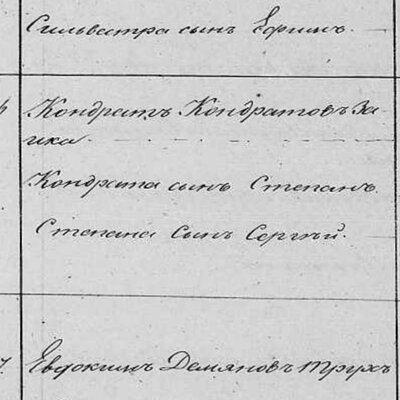 Сильвестра сынъ Ефимъ.
Кондратъ Кондратовъ За-
ика
Кондрата сынъ Степанъ.
Степана сынъ Сергѣй.
Евдокимъ Демяновъ